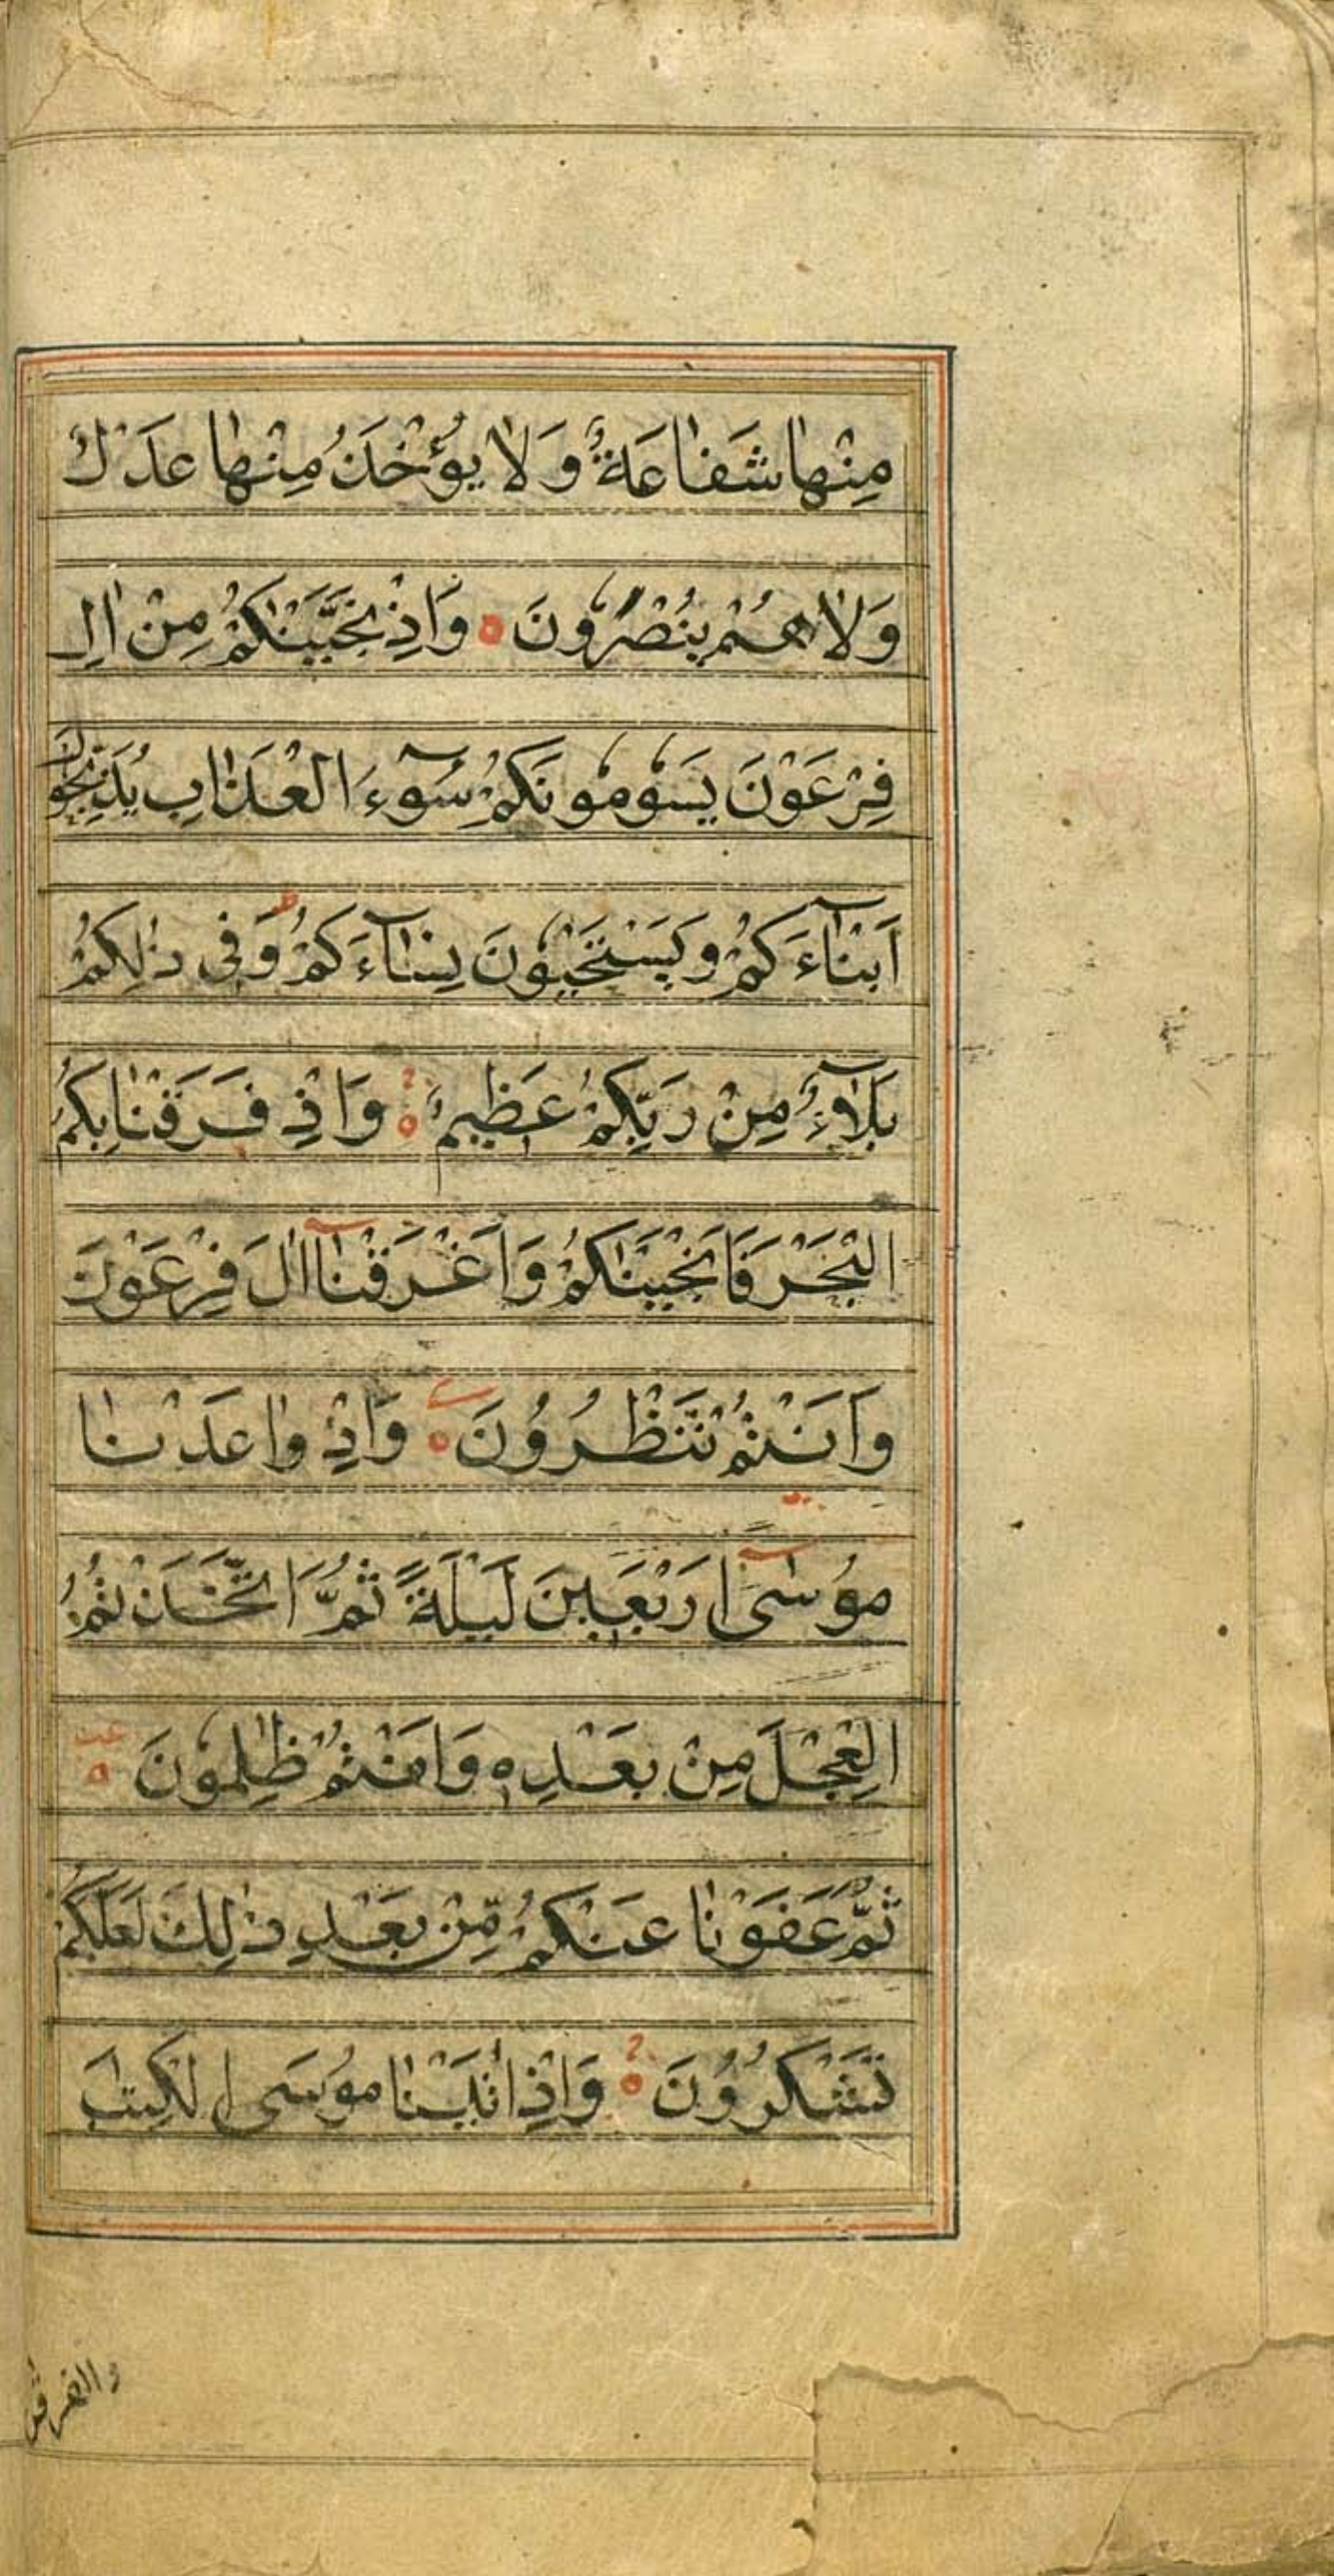 مِنْهٰا شَفٰاعَةٌ وَلٰا يُؤْخَذُ مِنْهٰا عَدْلٌ
وَلٰا هُمْ يُنْصَرُونَ ٥ وَاِذْ نَجَّيْنٰكُمْ مِنْ اٰلِ
فِرْعَوْنَ يَسُومُونَكُمْ سُوٓءَ الْعَذٰابِ يُذَبِّحُونَ
اَبْنٰآءَكُمْ وَيَسْتَحْيُونَ نِسٰآءَكُمْ ط وَفِى ذٰلِكُمْ
بَلٰآءٌ مِنْ رَبِّكُمْ عَظِيمٌ ٥ وَاِذْ فَرَقْنٰا بِكُمُ
الْبَحْرَ فَاَنْجَيْنٰكُمْ وَاَغْرَقْنٰآ اٰلَ فِرْعَوْنَ
وَاَنْتُمْ تَنْظُرُونَ ٥ وَاِذْ وٰاعَدْنٰا
مُوسٰىٓ اَرْبَعِينَ لَيْلَةً ثُمَّ اتَّخَذْتُمُ
الْعِجْلَ مِنْ بَعْدِهِ وَاَنْتُمْ ظٰلِمُونَ ٥
ثُمَّ عَفَوْنٰا عَنْكُمْ مِّنْ بَعْدِ ذٰلِكَ لَعَلَّكُمْ
تَشْكُرُونَ ٥ وَاِذْ اٰتَيْنٰا مُوسَى الْكِتٰبَ
والفرقان